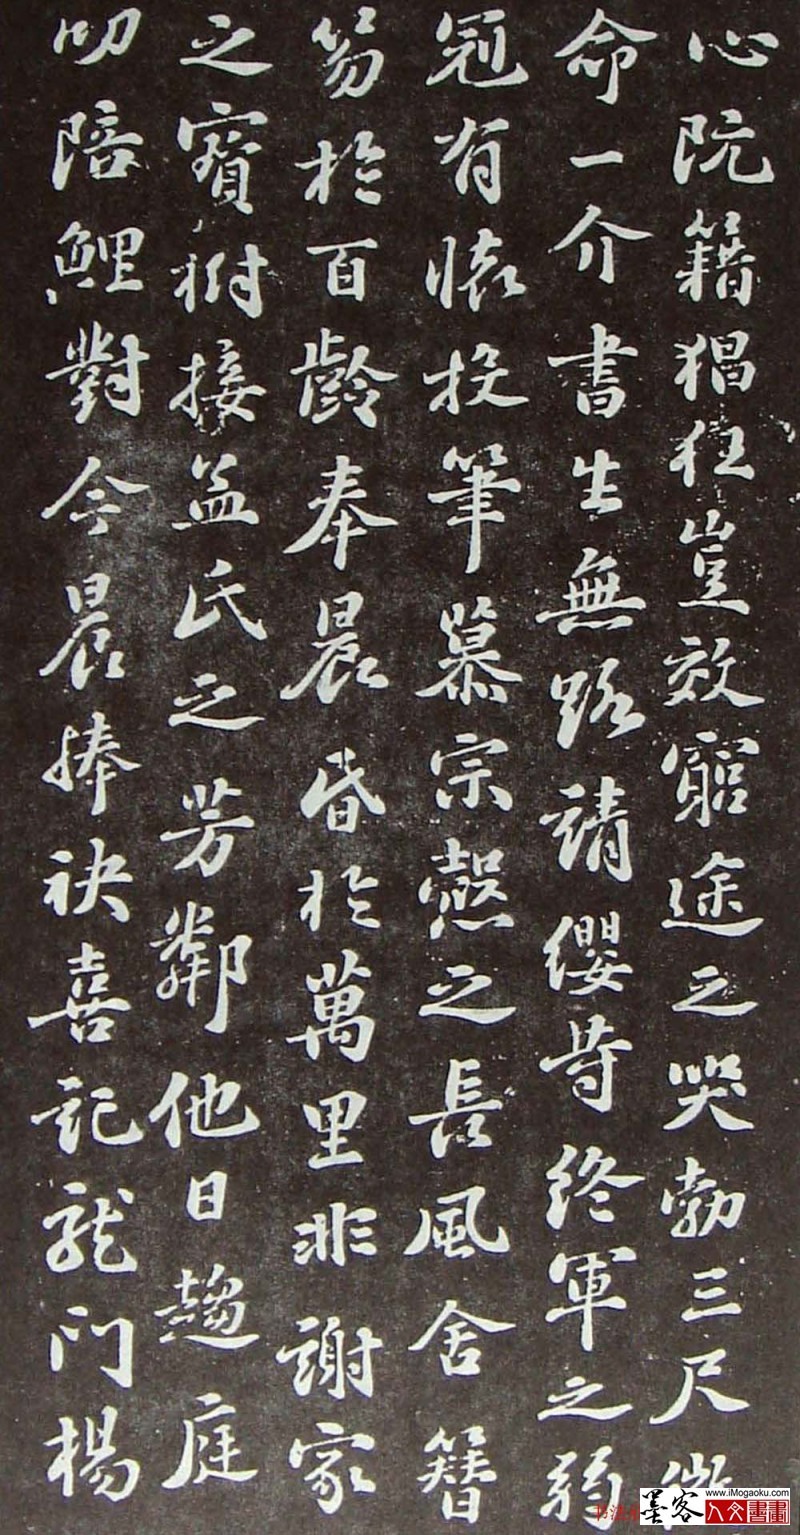 心阮籍猖狂豈效窮途之哭勃三尺微
命一介書生無路請纓等終軍之弱
冠有懷投筆慕宗愨之長風舍簪
笏於百齡奉晨昏於萬里非謝家
之寶樹接孟氏之芳鄰他日趨庭
叨陪鯉對今晨捧袂喜託龍門楊
www.iMogaoku.com
墨客人文書畫